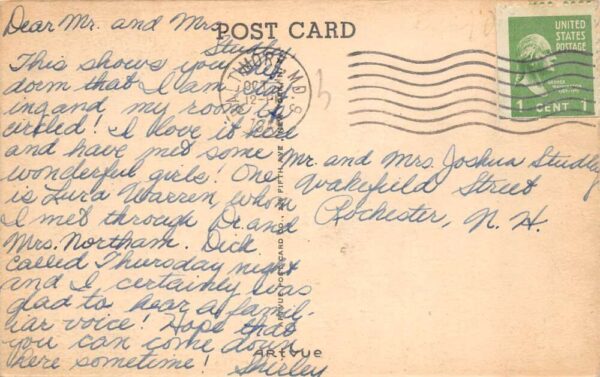 Dear Mr. and Mrs.
Studley
This shows you the
dorm that I am liv-
ing and my room is
circled! I love it here
and have met some
wonderful girls! One
is Lura Warren, whom
I met through Dr. and
Mrs. Northam. Dick
called Thursday night
and I certainly was
glad to hear a famil-
iar voice! Hope that
you can come down
here sometime!
Shirley
POST CARD
BALTIMORE, MD.
OCT
12 -
UNITED
STATES
POSTAGE
GEORGE
WASHINGTON
1 CENT 1
Mr. and Mrs. Joshua Studley
Wakefield Street
Rochester, N. H.
ARTVUE POST CARD CO., FIFTH AVE
ARTVUE